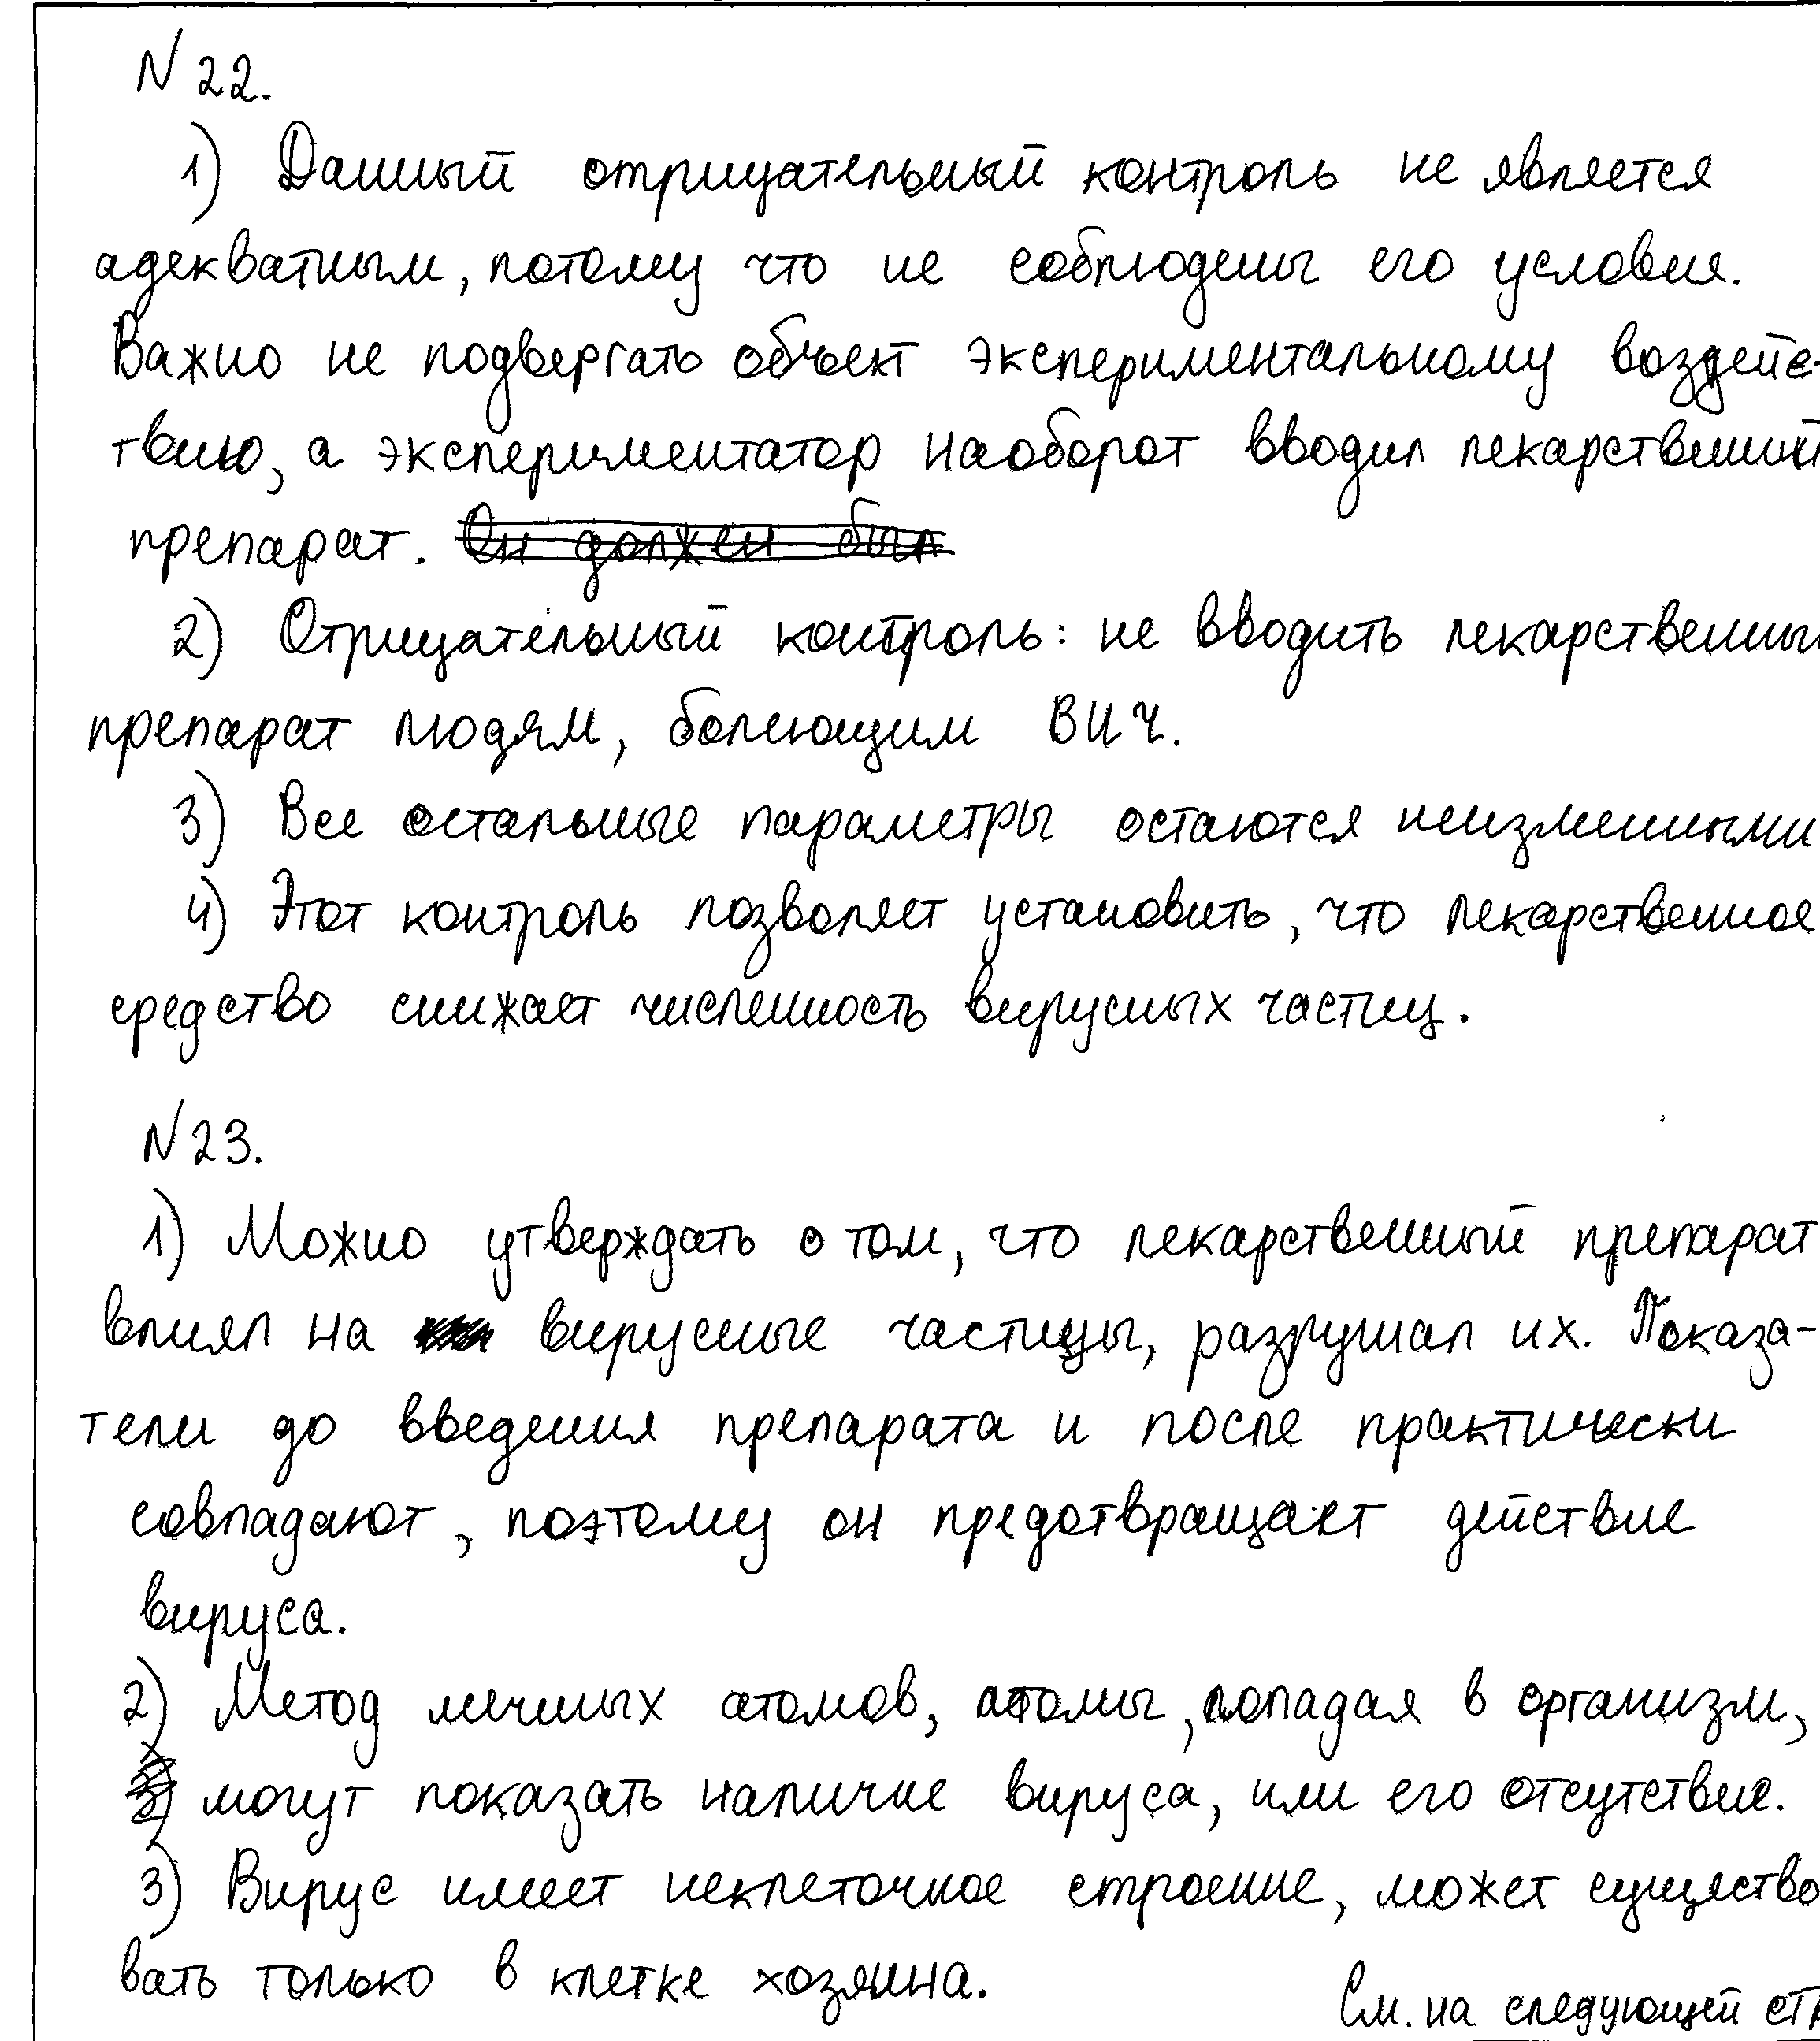 N 22.
1) Данный отрицательный контроль не является
адекватным, потому что не соблюдены его условия.
Важно не подвергать объект экспериментальному воздейс-
твию, а экспериментатор наоборот вводил лекарственный
препарат. Он должен был
2) Отрицательный контроль: не вводить лекарственный
препарат людям, болеющим ВИЧ.
3) Все остальные параметры остаются неизменными
4) Этот контроль позволяет установить, что лекарственное
средство снижает численность вирусных частиц.
N 23.
1) Можно утверждать о том, что лекарственный препарат
влиял на вирусные частицы, разрушал их. Показа-
тели до введения препарата и после практически
совпадают, поэтому он предотвращает действие
вируса.
2) Метод мечных атомов, атомы, попадая в организм,
могут показать наличие вируса, или его отсутствие.
3) Вирус имеет неклеточное строение, может существо
вать только в клетке хозяина.
См. на следующей стр